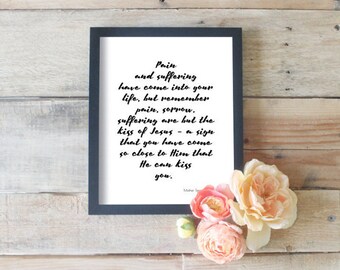 Pain
and suffering
have come into your
life, but remember
pain, sorrow,
suffering are but the
kiss of Jesus - a sign
that you have come
so close to Him that
He can kiss
you.